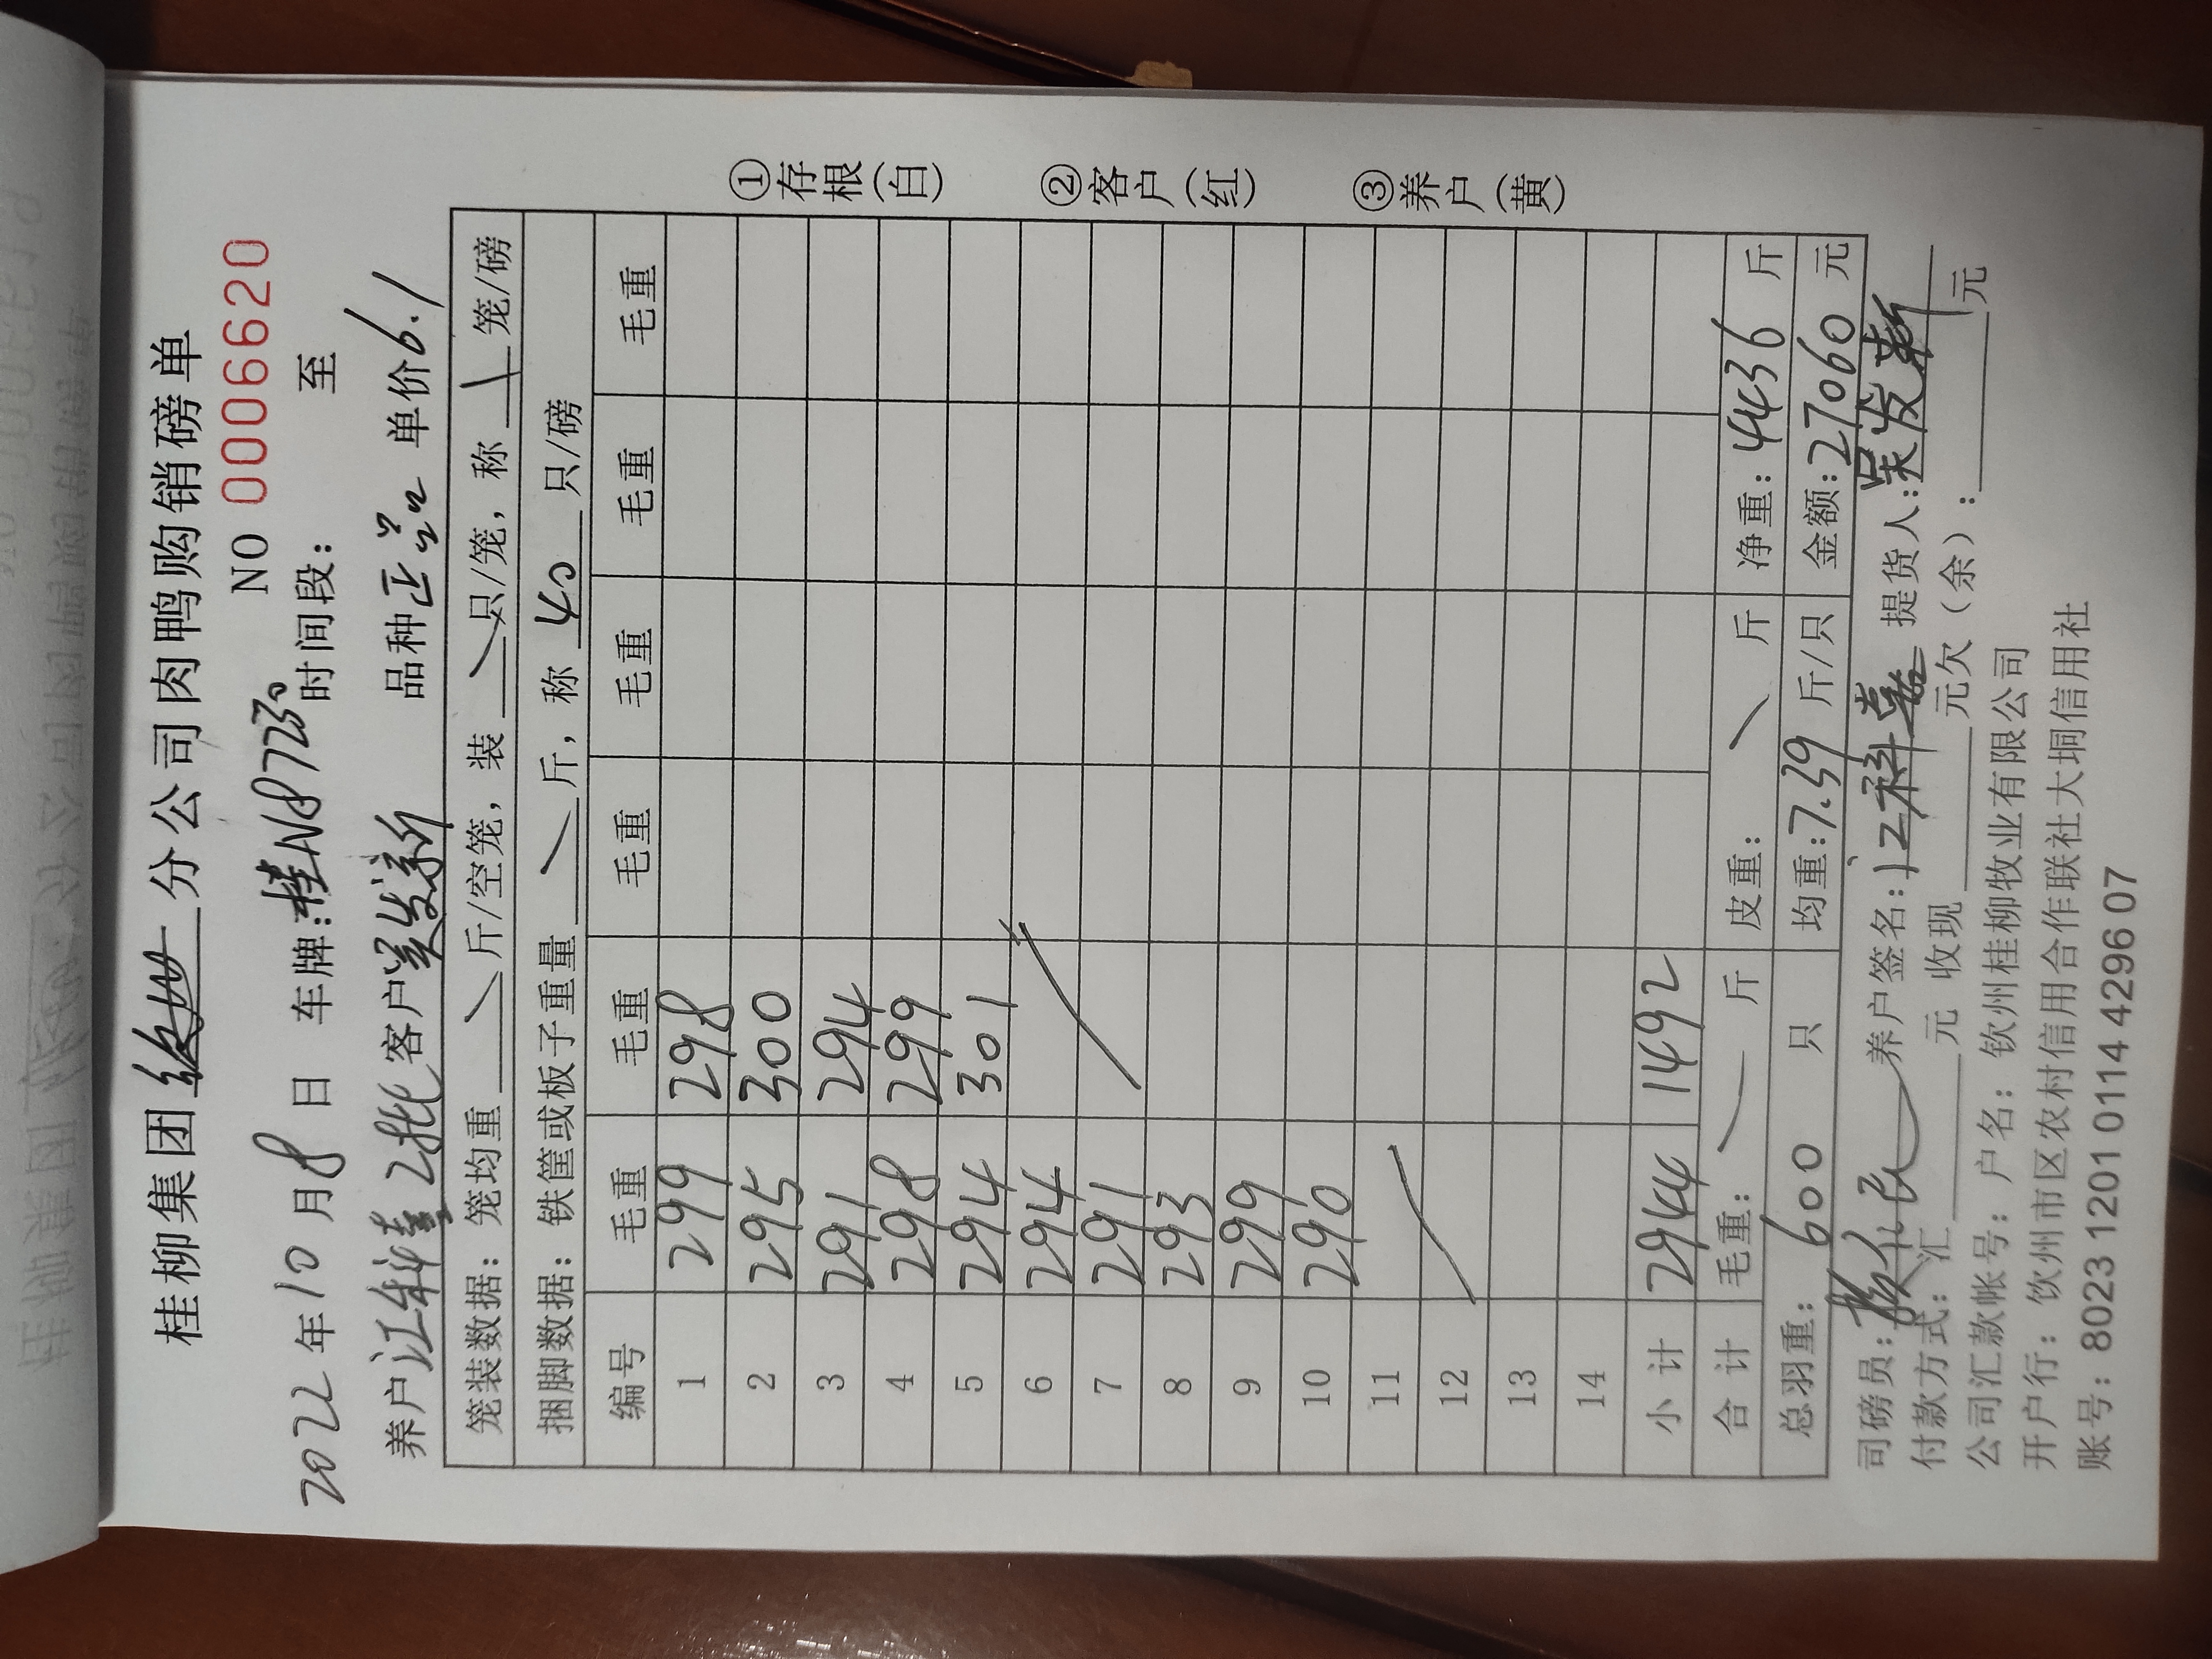 桂柳集团 分公司肉鸭购销磅单
NO 0006620
2022年10月8日 车牌:桂N87230 时间段: 至
养户江科嘉2批 客户吴发新 品种正品 单价6.1
笼装数据: 笼均重 \ 斤/空笼, 装 \ 只/笼, 称 \ 笼/磅
捆脚数据: 铁筐或板子重量 \ 斤, 称 40 只/磅
编号 毛重 毛重 毛重 毛重 毛重 毛重
1 299 298
2 295 300
3 291 294
4 298 299
5 294 301
6 294
7 291
8 293
9 299
10 290
11
12
13
14
小计 2944 1492
合计 毛重: 斤 皮重: \ 斤 净重: 4436 斤
总羽重: 600 只 均重: 7.39 斤/只 金额: 27060 元
司磅员: 养户签名: 江科嘉 提货人: 吴发新
付款方式: 汇 元 收现 元欠(余): 元
公司汇款帐号: 户名: 钦州桂柳牧业有限公司
开户行: 钦州市区农村信用合作联社大垌信用社
账号: 8023 1201 0114 4296 07
①存根(白)
②客户(红)
③养户(黄)